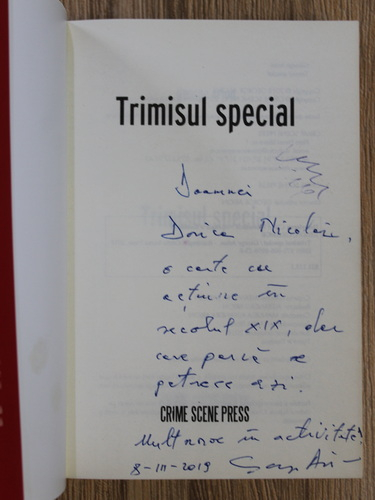 Trimisul special
Doamnei
Dorica Nicolaie,
o carte cu
acțiune în
secolul XIX, dar
care parcă se
petrece azi.
CRIME SCENE PRESS
Mult noroc în activitate!
8-III-2019